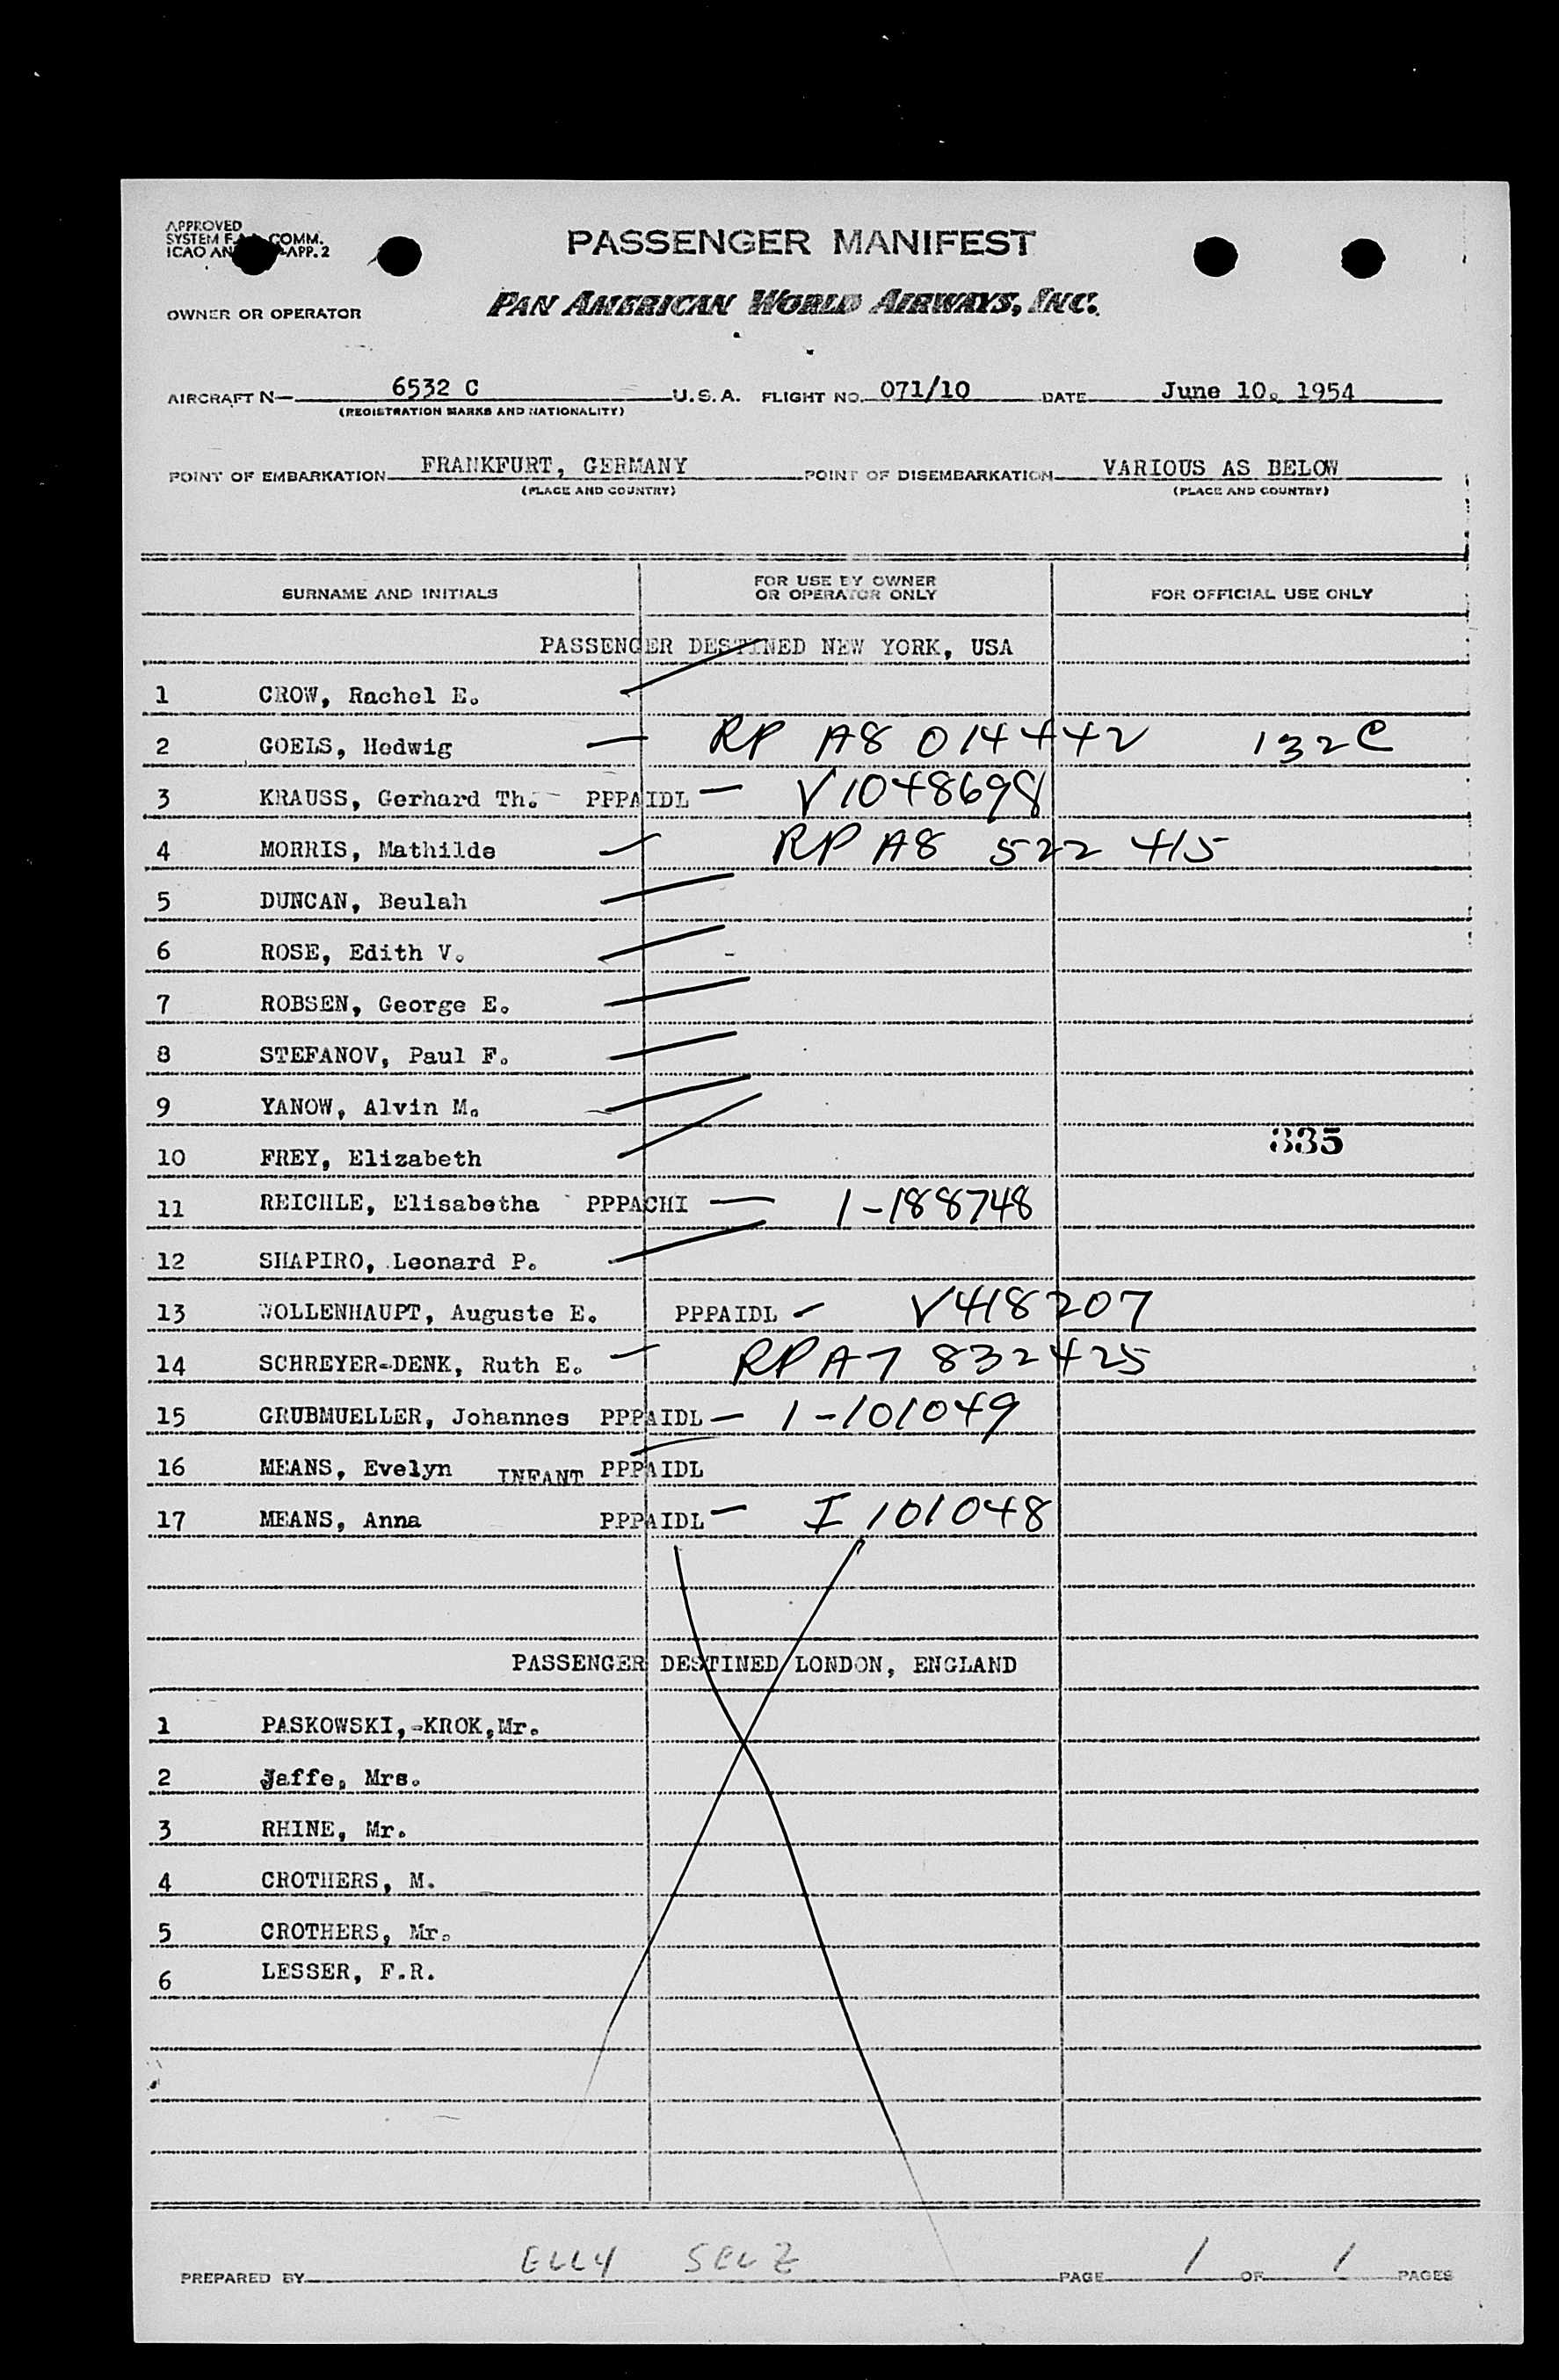 APPROVED
SYSTEM F. COMM.
ICAO AN -APP. 2
PASSENGER MANIFEST
OWNER OR OPERATOR PAN AMERICAN WORLD AIRWAYS, INC.
AIRCRAFT N— 6532 C U.S.A. FLIGHT NO. 071/10 DATE June 10. 1954
(REGISTRATION MARKS AND NATIONALITY)
POINT OF EMBARKATION FRANKFURT, GERMANY POINT OF DISEMBARKATION VARIOUS AS BELOW
(PLACE AND COUNTRY) (PLACE AND COUNTRY)
SURNAME AND INITIALS FOR USE BY OWNER OR OPERATOR ONLY FOR OFFICIAL USE ONLY
PASSENGER DESTINED NEW YORK, USA
1 CROW, Rachel E.
2 GOELS, Hedwig — RP A8 014442 132C
3 KRAUSS, Gerhard Th. PPPAIDL — V1048698
4 MORRIS, Mathilde RP A8 522 415
5 DUNCAN, Beulah
6 ROSE, Edith V.
7 ROBSEN, George E.
8 STEFANOV, Paul F.
9 YANOW, Alvin M.
10 FREY, Elizabeth 335
11 REICHLE, Elisabetha PPPACHI — 1-188748
12 SHAPIRO, Leonard P.
13 WOLLENHAUPT, Auguste E. PPPAIDL — V418207
14 SCHREYER-DENK, Ruth E. — RP A7 832425
15 GRUBMUELLER, Johannes PPPAIDL — 1-101049
16 MEANS, Evelyn INFANT PPPAIDL
17 MEANS, Anna PPPAIDL — I 101048
PASSENGER DESTINED LONDON, ENGLAND
1 PASKOWSKI,-KROK,Mr.
2 Jaffe, Mrs.
3 RHINE, Mr.
4 CROTHERS, M.
5 CROTHERS, Mr.
6 LESSER, F.R.
PREPARED BY ELLY SELZ PAGE 1 OF 1 PAGES